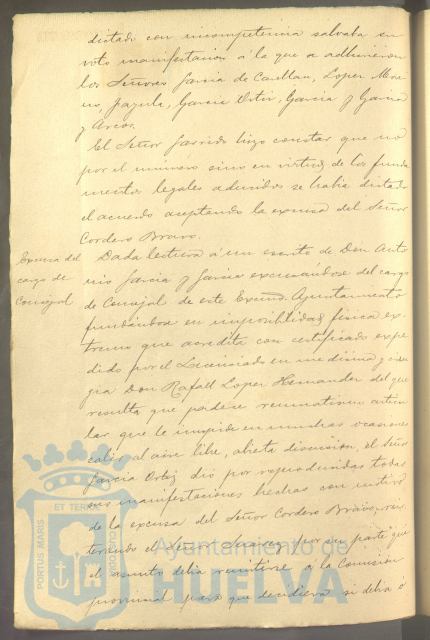 dictado con incompetencia salvaba su
voto manifestacion á la que se adhirieron
los Señores Garcia de Casillan, Lopez More
no, Jazula, Garcia Ortiz, Garcia y Garcia
y Arcos.
El Señor Garrido hizo constar que no
por el número sino en virtud de los funda
mentos legales aducidos se habia dictado
el acuerdo aceptando la excusa del Señor
Cordero Bravo.
Excusa del
cargo de
Concejal
Dada lectura á un escrito de Don Anto
nio Garcia y Garcia excusandose del cargo
de Concejal de este Excmo. Ayuntamiento
fundándose en imposibilidad física ex-
tremo que acredita con certificado expe
dido por el Licenciado en medicina y ciru
gia Don Rafael Lopez Hernandez del que
resulta que padece reumatismo articu
lar que le impide en muchas ocasiones
salir al aire libre, abierta discusion, el Señor
Garcia Ortiz dió por reproducidas todas
sus manifestaciones hechas con motivo
de la excusa del Señor Cordero Bravo,
el Señor Suarez por su parte que
el asunto debia remitirse a la Comision
provincial para que decidiera si debia ó
PORTUS MARIS
ET TERRAE
CUSTODIA
Ayuntamiento de
HUELVA